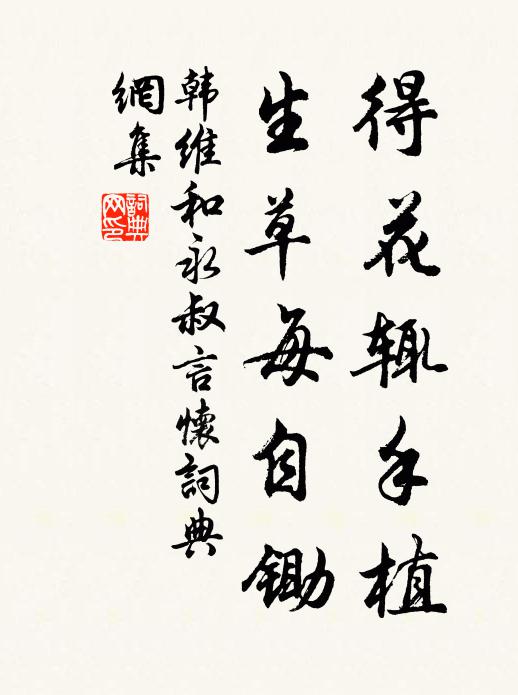 得花辄手植
生草每自锄
韩维和永叔言懷詞典
網集
詞典网印